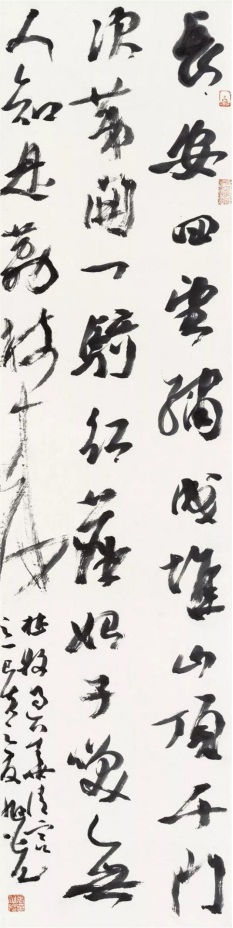 長安回望繡成堆山頂千門
次第開一騎紅塵妃子笑無
人知是荔枝来
杜牧過華清宮
之一